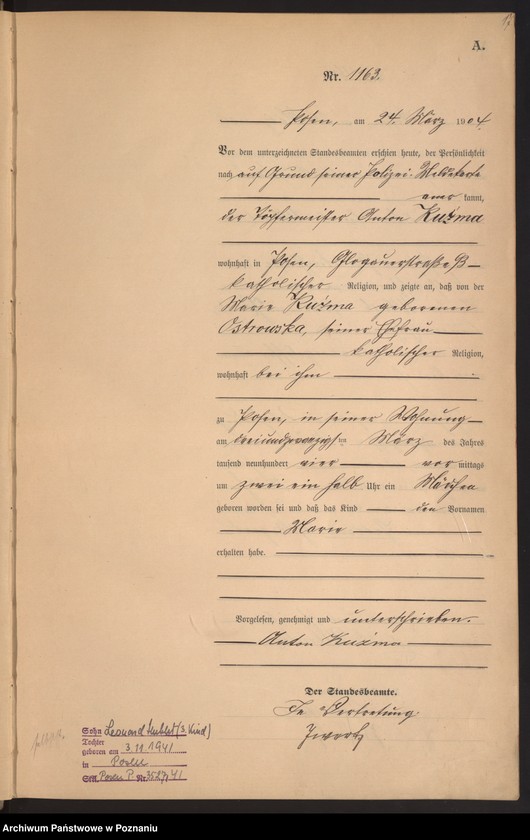 A.
Nr. 1163.
Posen, am 24. März 1904.
Vor dem unterzeichneten Standesbeamten erschien heute, der Persönlichkeit
nach auf Grund seiner Polizei-Meldekarte
aner kannt,
der Töpfermeister Anton Kuźma
wohnhaft in Posen, Glogauerstraße 93
katholischer Religion, und zeigte an, daß von der
Marie Kuźma geborenen
Ostrowska, seiner Ehefrau
katholischer Religion,
wohnhaft bei ihm
zu Posen, in seiner Wohnung
am dreiundzwanzigsten März des Jahres
tausend neunhundert vier vor mittags
um zwei ein halb Uhr ein Mädchen
geboren worden sei und daß das Kind den Vornamen
Marie
erhalten habe.
Vorgelesen, genehmigt und unterschrieben.
Anton Kuźma
Der Standesbeamte.
In Vertretung
Sohn Leonard (3. Kind)
Tochter
geboren am 3.11.1941
in Posen
StA. Posen P Nr. 3527/41
Archiwum Państwowe w Poznaniu